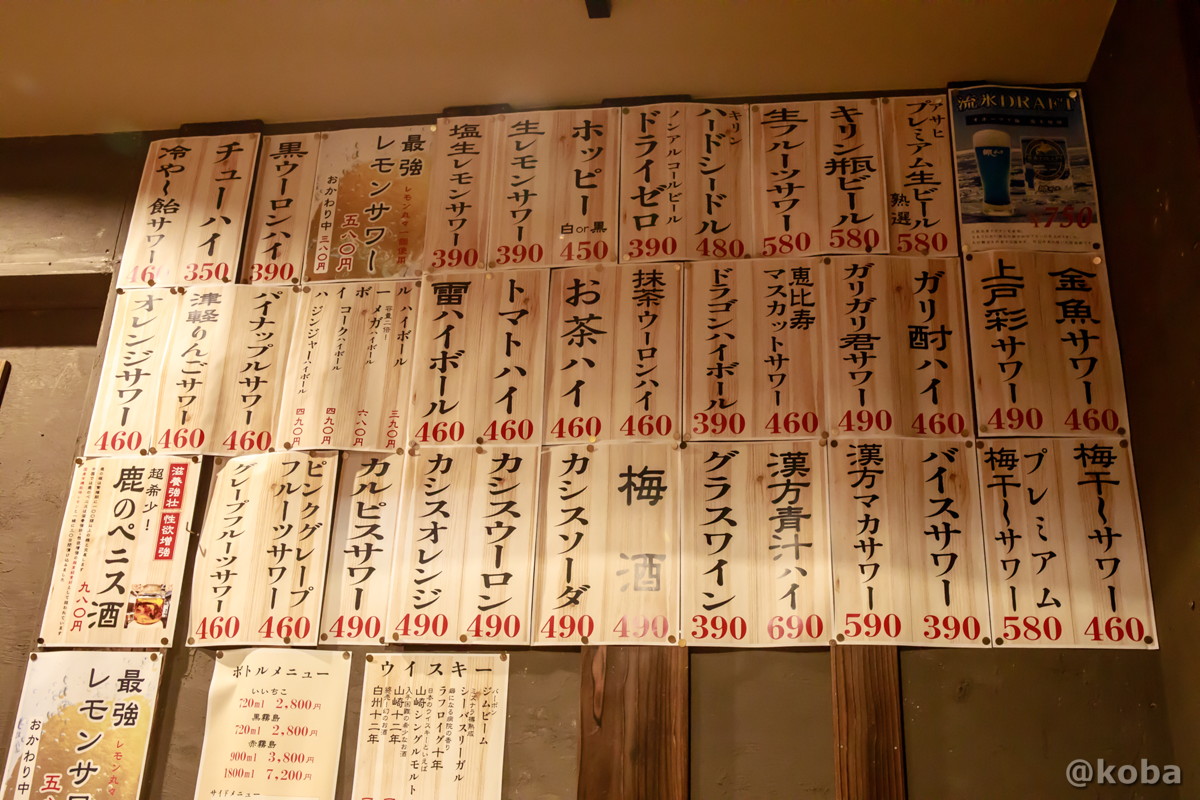 流氷DRAFT
750
アサヒ
プレミアム生ビール
熟選
580
キリン瓶ビール
580
生フルーツサワー
580
キリン
ハードシードル
480
ノンアルコールビール
ドライゼロ
390
ホッピー
白or黒
450
生レモンサワー
390
塩生レモンサワー
390
最強
レモンサワー
レモン丸々一個使用
五八〇円
おかわり中 三八〇円
黒ウーロンハイ
390
チューハイ
350
冷や〜飴サワー
460
金魚サワー
460
上戸彩サワー
490
ガリ酎ハイ
460
ガリガリ君サワー
490
恵比寿
マスカットサワー
460
ドラゴンハイボール
390
抹茶ウーロンハイ
460
お茶ハイ
460
トマトハイ
460
雷ハイボール
460
ハイボール
三九〇円
容量二倍!
メガハイボール
六八〇円
コークハイボール
四九〇円
ジンジャーハイボール
四九〇円
パイナップルサワー
460
津軽りんごサワー
460
オレンジサワー
460
梅干〜サワー
460
プレミアム
梅干〜サワー
580
バイスサワー
390
漢方マカサワー
590
漢方青汁ハイ
690
グラスワイン
390
梅酒
490
カシスソーダ
490
カシスウーロン
490
カシスオレンジ
490
カルピスサワー
490
ピンクグレープ
フルーツサワー
460
グレープフルーツサワー
460
滋養強壮 性欲増強
超希少!
鹿のペニス酒
九八〇円
最強
レモンサワ
レモン丸々
おかわり中
ボトルメニュー
いいちこ
720ml 2,800円
黒霧島
720ml 2,800円
赤霧島
900ml 3,800円
1800ml 7,200円
サイドメニュー
ウイスキー
バーボン
ジムビーム
ミズナラ樽熟成
シーバスリーガル
癖になる病院の香り
ラフロイグ十年
日本のウイスキーといえば
山崎シングルモルト
入手困難の希少なお酒
山崎十二年
白州十二年
@koba